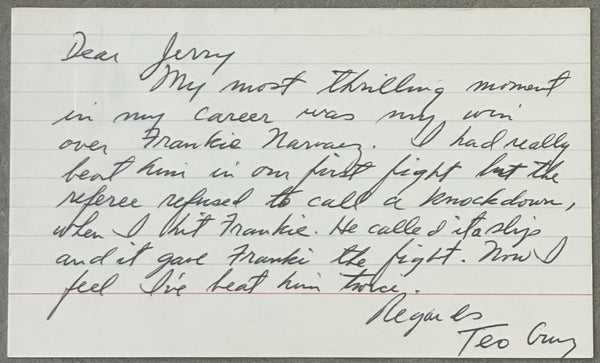 Dear Jerry
My most thrilling moment
in my career was my win
over Frankie Narvaez. I had really
beat him in our first fight but the
referee refused to call a knockdown,
when I hit Frankie. He called it a slip
and it gave Franki the fight. Now I
feel I've beat him twice.
Regards
Teo Cruz